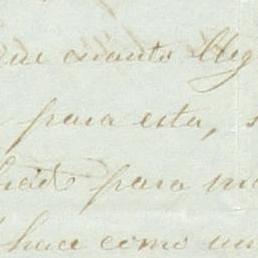 que cuanto lleg
para esta, s
para m
hace como un